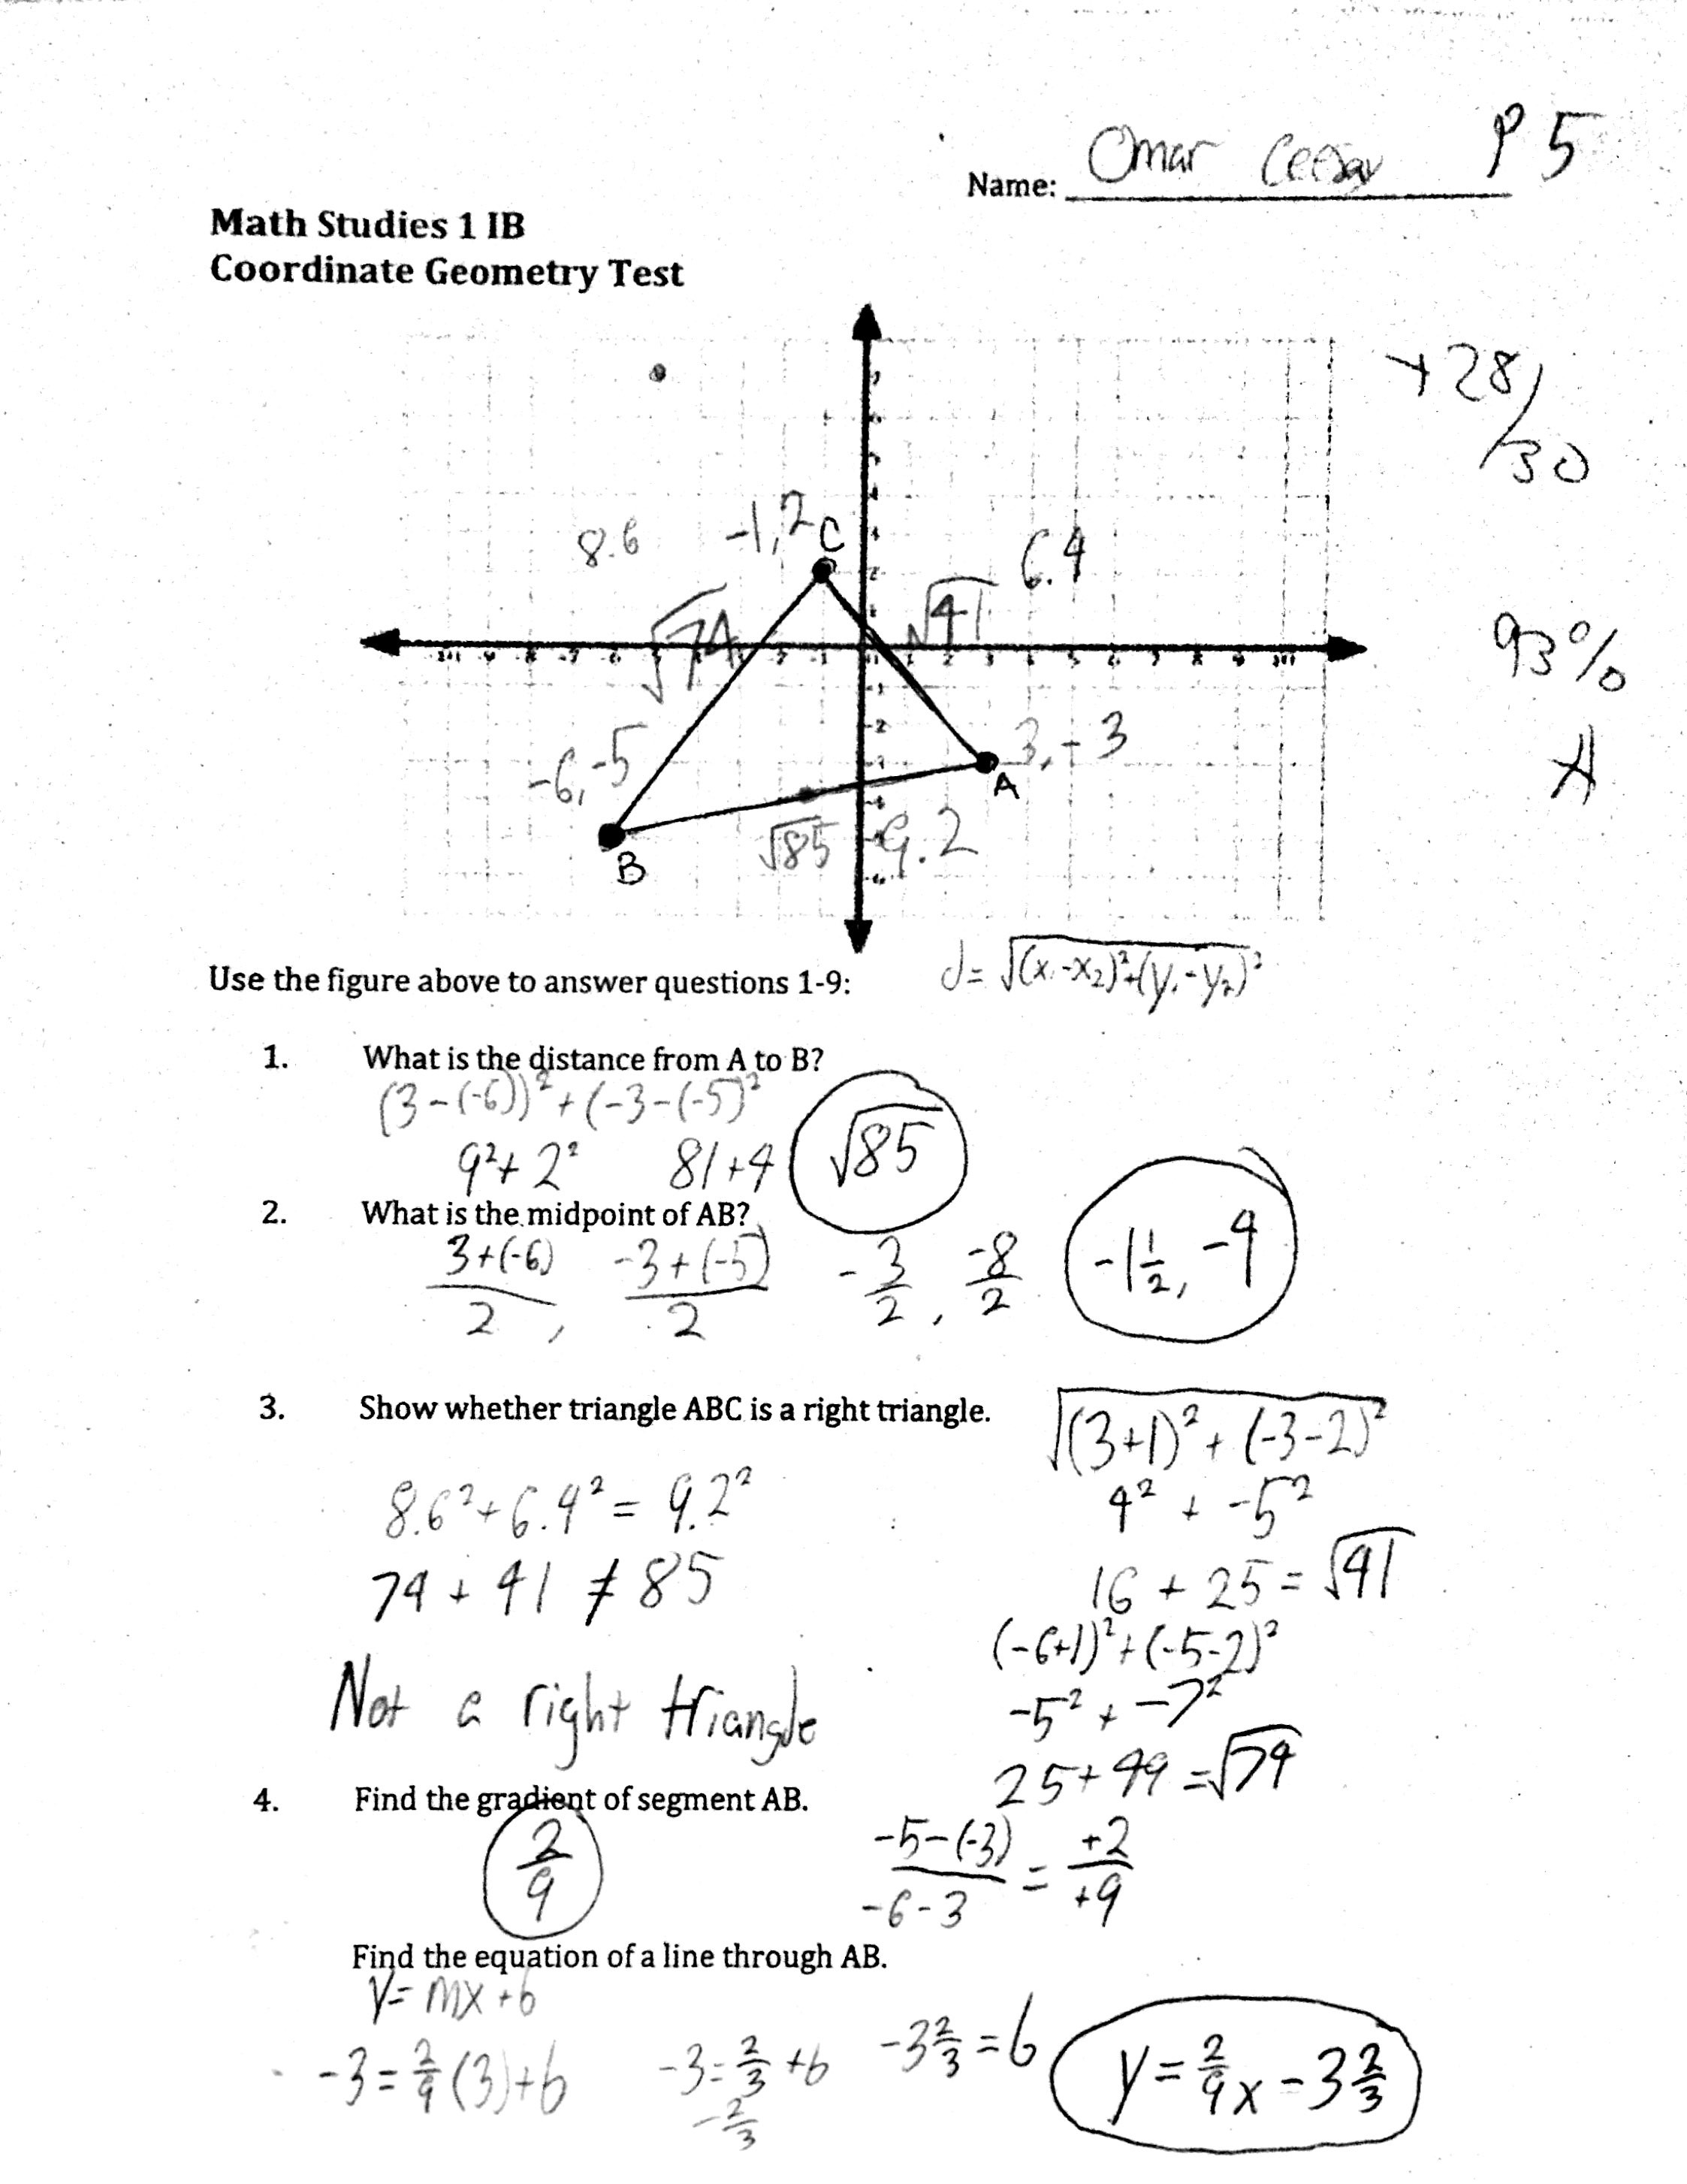 Name: Omar P 5
Math Studies 1 IB
Coordinate Geometry Test
+28/30
93%
A
8.6
-1,2 C
6.4
√74
√41
-6,-5
3,-3
A
B
√85
9.2
Use the figure above to answer questions 1-9:
d= √(x₁-x₂)²+(y₁-y₂)²
1. What is the distance from A to B?
(3-(-6))²+(-3-(-5)²
9²+2² 81+4 √85
2. What is the midpoint of AB?
3+(-6)/2, -3+(-5)/2 -3/2, -8/2 -1 1/2, -4
3. Show whether triangle ABC is a right triangle.
√(3+1)²+(-3-2)²
8.6²+6.4²=9.2²
4² + -5²
74+41≠85
16+25=√41
(-6+1)²+(-5-2)²
Not a right triangle
-5²+-7²
25+49=√74
4. Find the gradient of segment AB.
2/9
-5-(-3)/-6-3 = +2/+9
Find the equation of a line through AB.
y=mx+b
-3=2/9(3)+b -3=2/3+b -3 2/3=b y=2/9x-3 2/3
-2/3